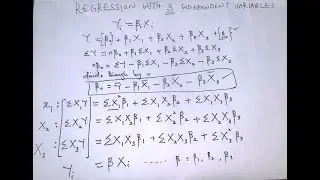 REGRESSION WITH 3 INDEPENDENT VARIABLES
Yi = β Xi
Y = [β0] + β1 X1 + β2 X2 + β3 X3 + [ε]
ΣY = nβ0 + β1ΣX1 + β2ΣX2 + β3ΣX3
nβ0 = ΣY - β1ΣX1 - β2ΣX2 - β3ΣX3
divide through by n
β0 = Ȳ - β1X̄1 - β2X̄2 - β3X̄3
x1: [ΣX1Y] = ΣX1²β1 + ΣX1X2β2 + ΣX1X3β3
X2: [ΣX2Y] = ΣX1X2β1 + ΣX2²β2 + ΣX2X3β3
X3: [ΣX3Y] = ΣX1X3β1 + ΣX2X3β2 + ΣX3²β3
Yi = β Xi ...... β = β1, β2, β3